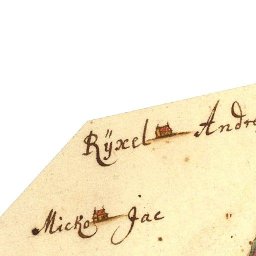 Rÿxel Andre
Micko Jac